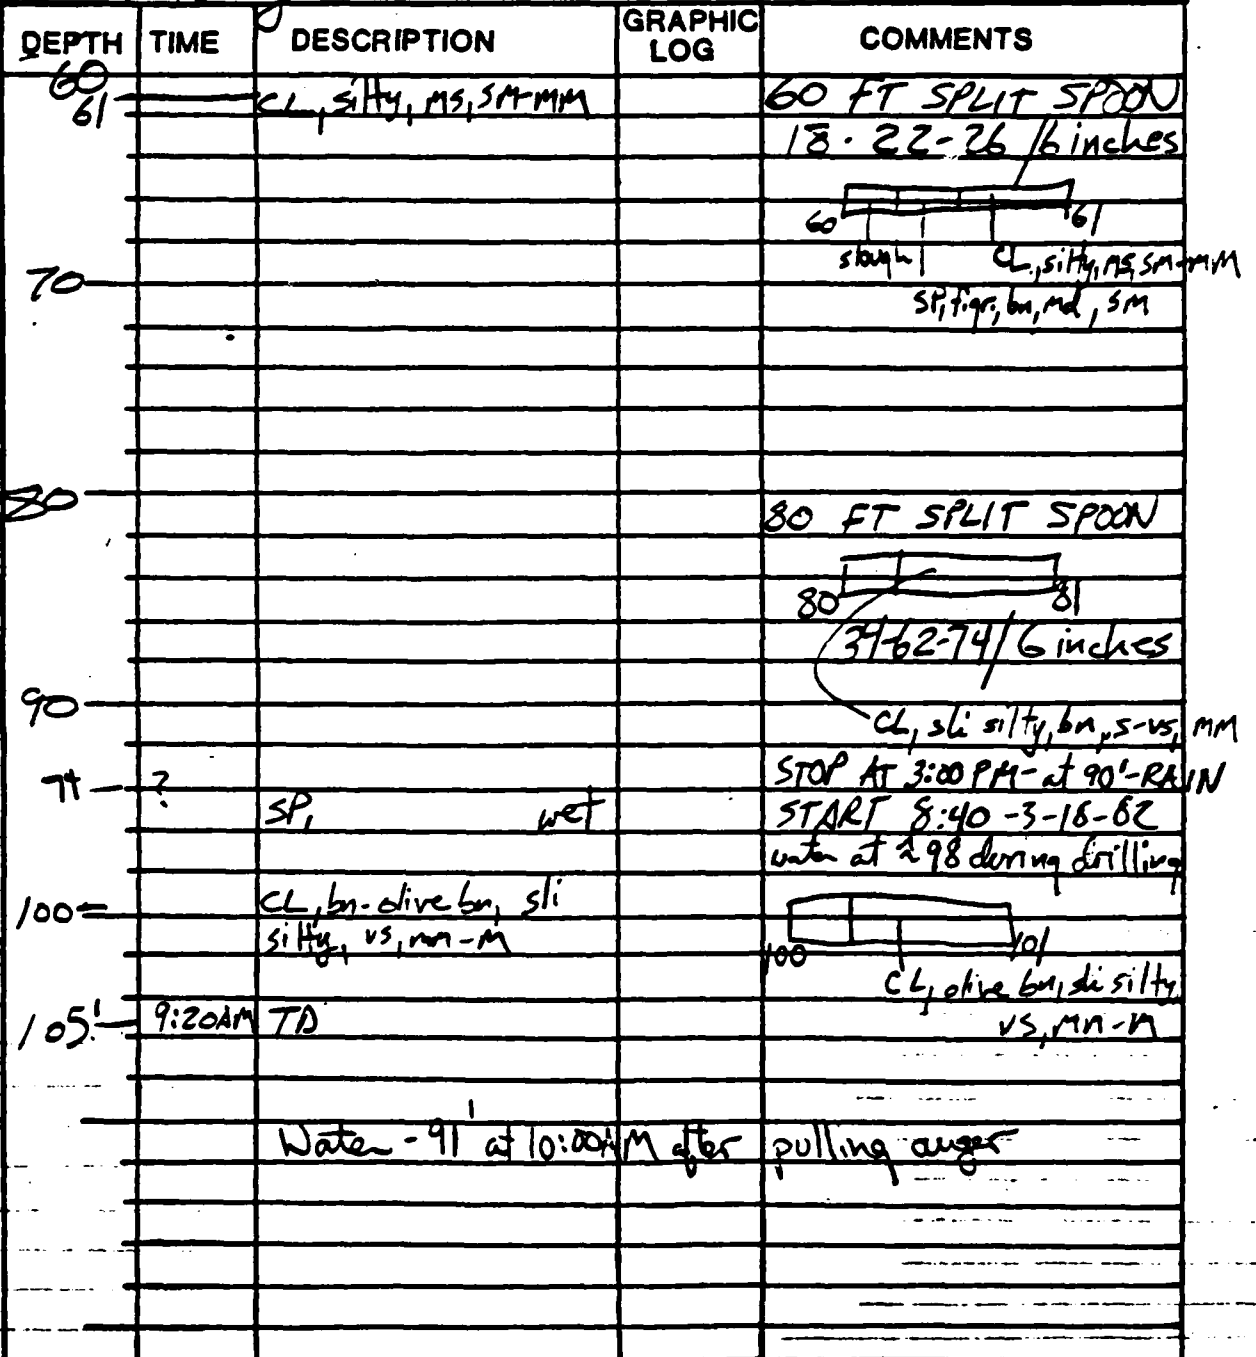 DEPTH TIME DESCRIPTION GRAPHIC LOG COMMENTS
60
61 CL, silty, ms, SM-MM 60 FT SPLIT SPOON
18-22-26/6 inches
60 61
slough CL, silty, ms, SM-MM
70
SP, figr., bn, md, SM
80
80 FT SPLIT SPOON
80 81
34-62-74/6 inches
90
CL, sli silty, bn, s-vs, MM
94 ? STOP AT 3:00 PM - at 90' - RAIN
SP, wet START 8:40 - 3-16-82
water at ≈98 during drilling
100 CL, bn-olive bn, sli
silty, vs, mm-M
100 101
CL, olive bn, sli silty
105' 9:20AM TD vs, mm-M
Water - 91' at 10:00AM after pulling auger